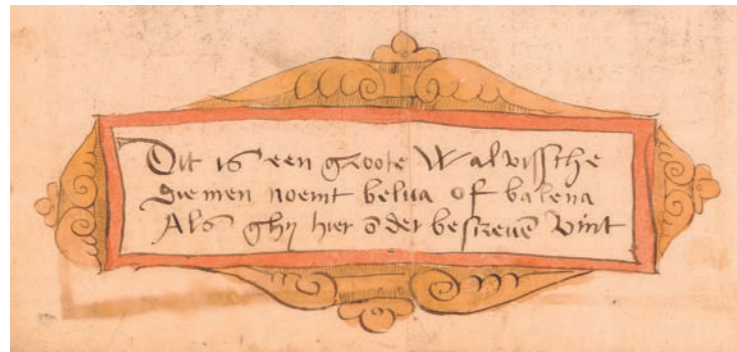 Dit is een groote Walvissche
die men noemt belua of balena
Als ghij hier ōder besreuē vint